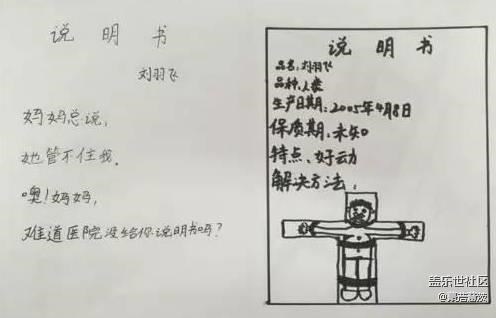 说明书
刘羽飞
妈妈总说,
她管不住我.
噢!妈妈,
难道医院没给你说明书吗?
说明书
品名:刘羽飞
品种:人类
生产日期:2005年4月8日
保质期:未知
特点:好动
解决方法:
盖乐世社区